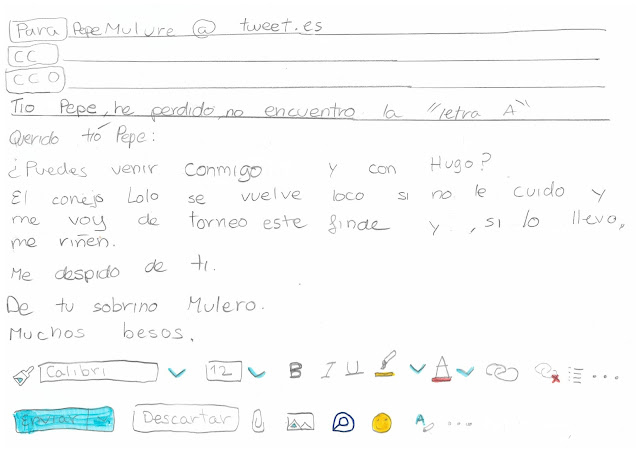 Para PepeMulure @ tweet.es
CC
CCO
Tio Pepe, he perdido, no encuentro la "letra A"
Querido tió Pepe:
¿Puedes venir conmigo y con Hugo?
El conejo Lolo se vuelve loco si no le cuido y
me voy de torneo este finde y , si lo llevo,
me riñen.
Me despido de ti.
De tu sobrino Mulero.
Muchos besos.
Calibri 12 B I U A
Enviar Descartar A